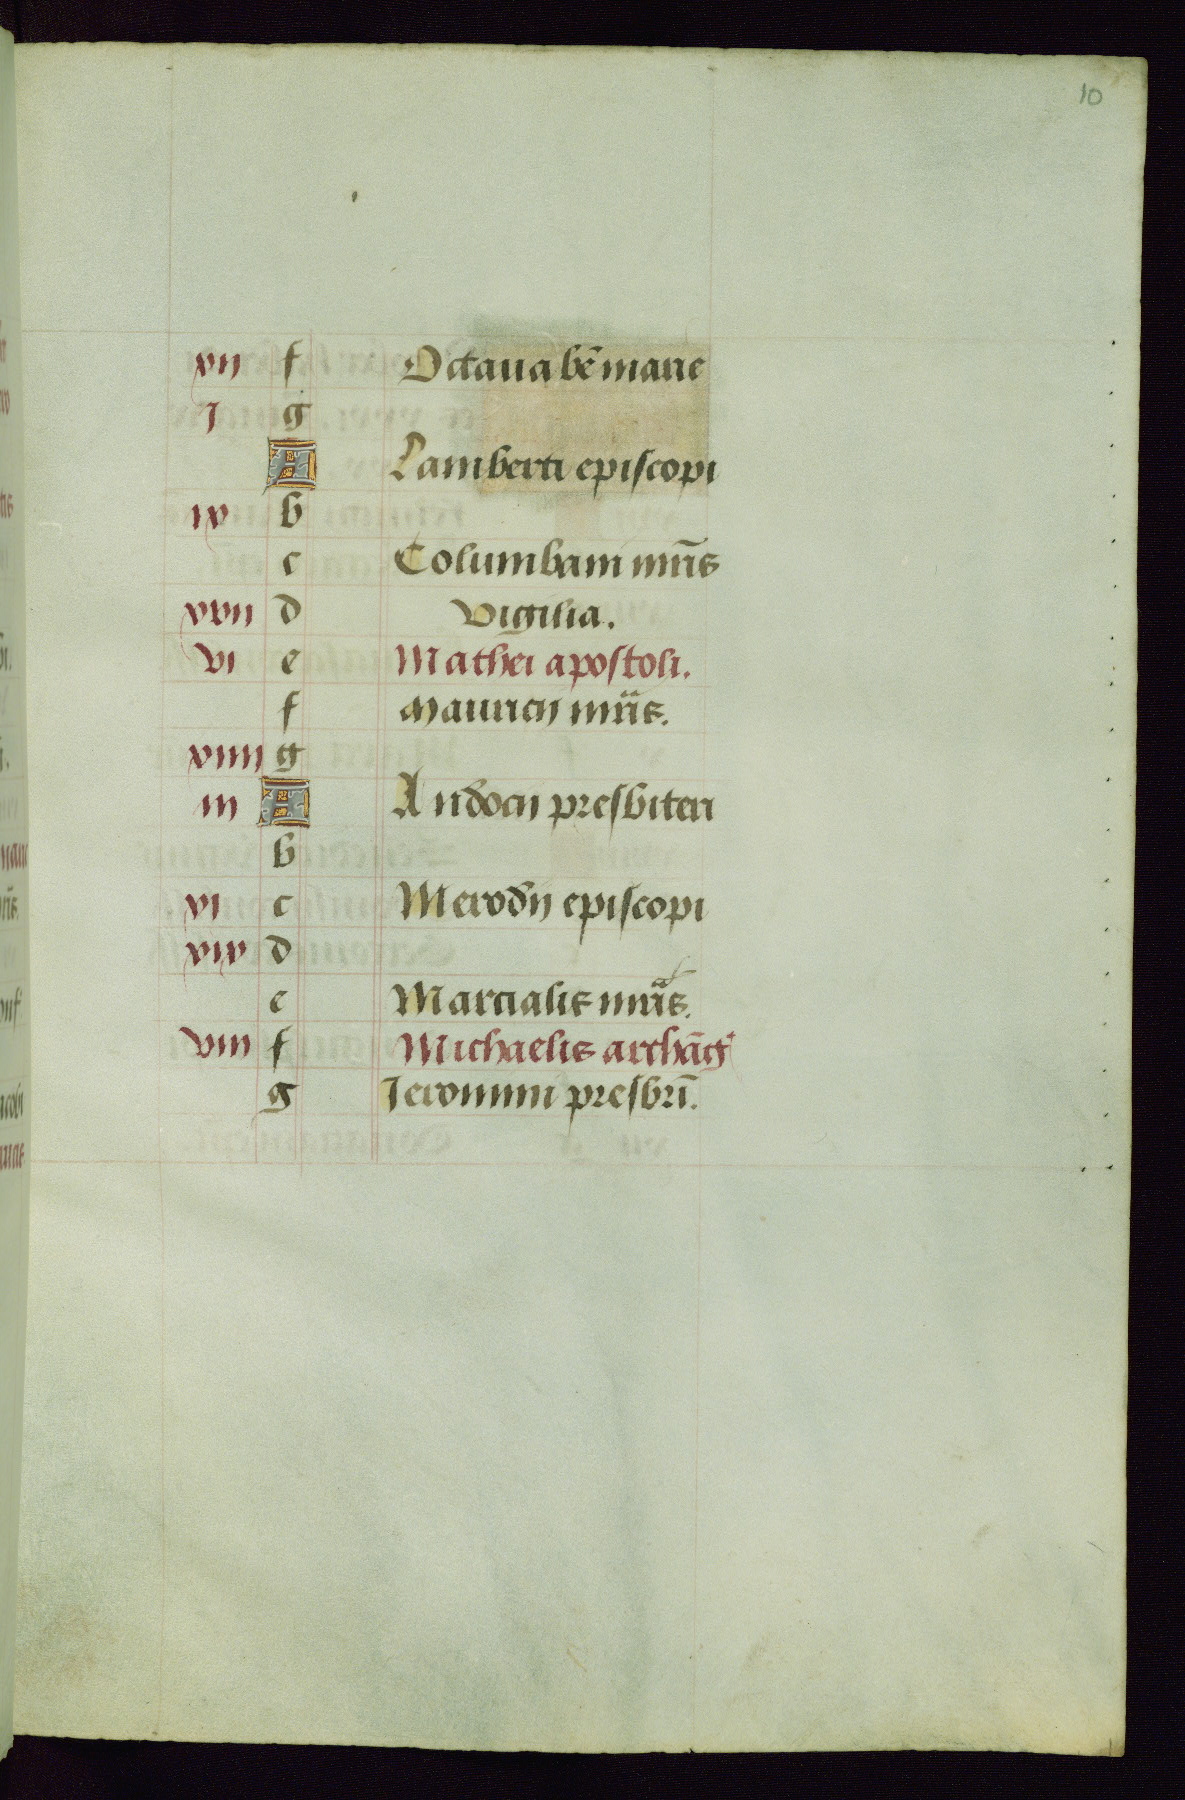 10
xii f Octaua bē marie
j g
A Lamberti episcopi
ix b
c Columbani mr̄is
xvii d Vigilia.
vi e Mathei apostoli.
f Mauricij mr̄is.
xiiii g
iii A Andocij presbiteri
b
xi c Merodij episcopi
xix d
e Marcialis mr̄is.
viii f Michaelis archāg
g Jeronimi presbri̅.